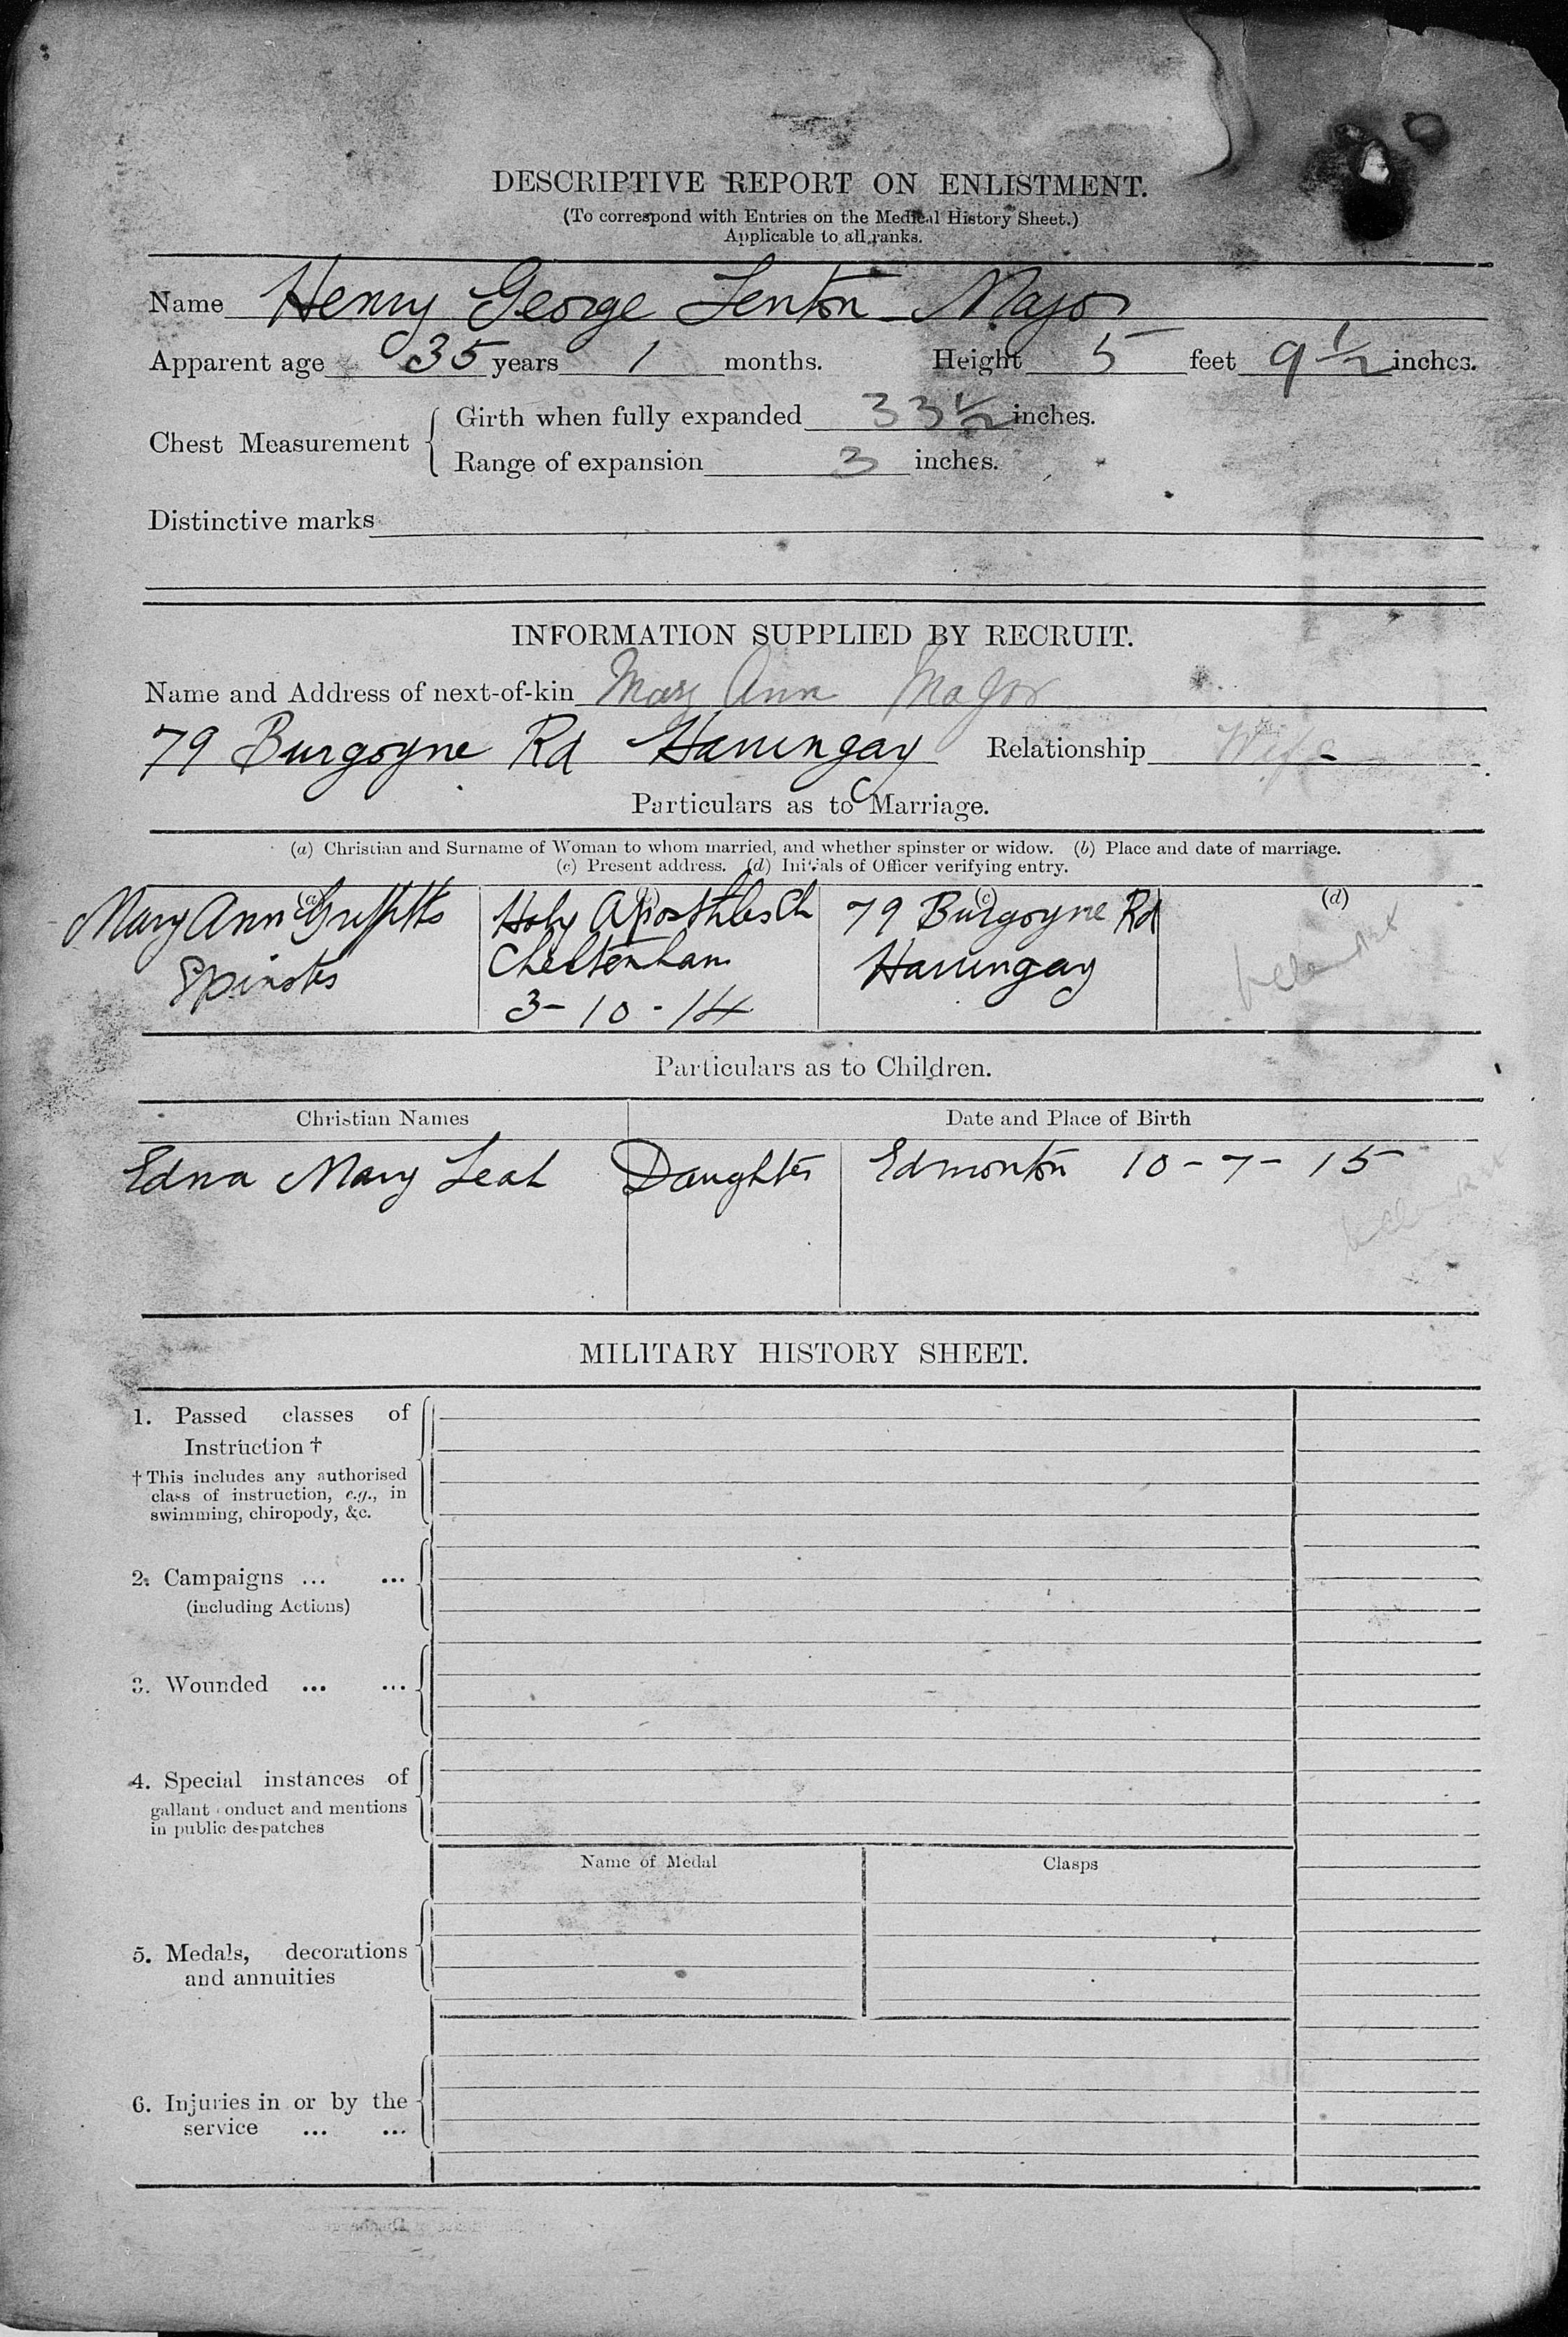 DESCRIPTIVE REPORT ON ENLISTMENT.
(To correspond with Entries on the Medical History Sheet.)
Applicable to all ranks.
Name Henry George Lenton Major
Apparent age 35 years 1 months. Height 5 feet 9 1/2 inches.
Girth when fully expanded 33 1/2 inches.
Chest Measurement
Range of expansion 3 inches.
Distinctive marks
INFORMATION SUPPLIED BY RECRUIT.
Name and Address of next-of-kin Mary Ann Major
79 Burgoyne Rd Harringay Relationship Wife
Particulars as to Marriage.
(a) Christian and Surname of Woman to whom married, and whether spinster or widow. (b) Place and date of marriage.
(c) Present address. (d) Initials of Officer verifying entry.
(a) (b) (c) (d)
Mary Ann Griffiths Holy Apostles Ch 79 Burgoyne Rd
Spinster Cheltenham Harringay
3-10-14
Particulars as to Children.
Christian Names Date and Place of Birth
Edna Mary Leah Daughter Edmonton 10-7-15
MILITARY HISTORY SHEET.
1. Passed classes of
Instruction †
† This includes any authorised
class of instruction, e.g., in
swimming, chiropody, &c.
2. Campaigns ... ...
(including Actions)
3. Wounded ... ...
4. Special instances of
gallant conduct and mentions
in public despatches
Name of Medal Clasps
5. Medals, decorations
and annuities
6. Injuries in or by the
service ... ...